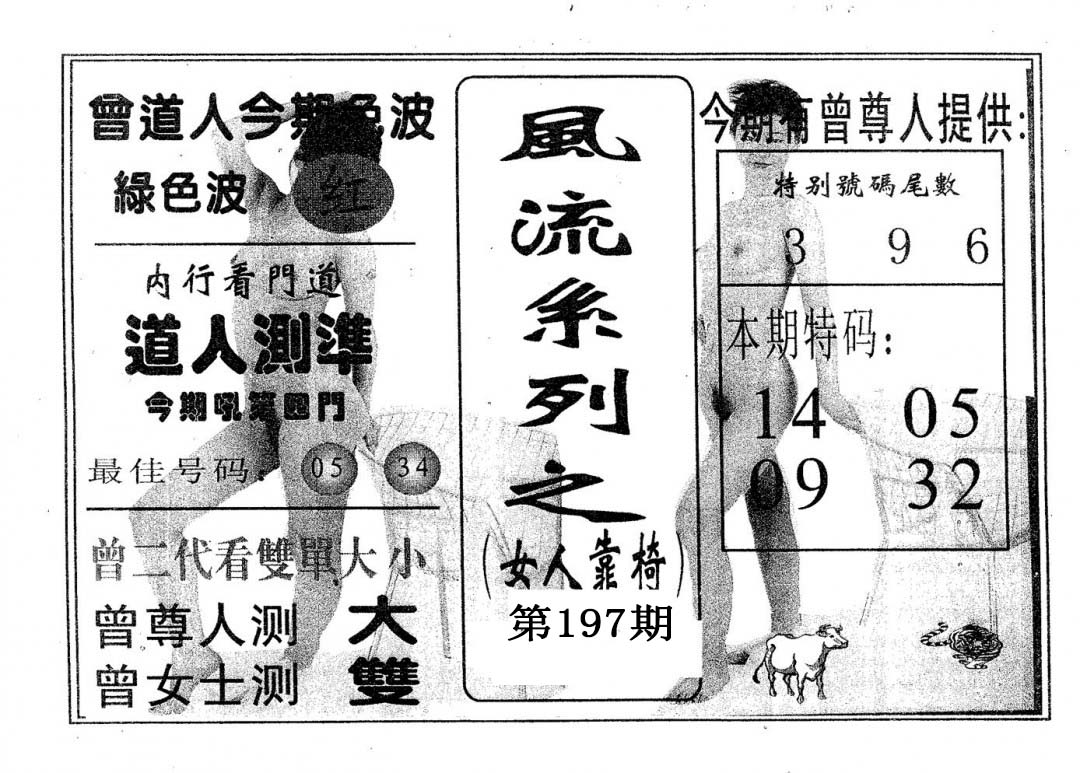 曾道人今期色波
綠色波 红
内行看門道
道人測準
今期吼第四門
最佳号码: 05 34
曾二代看雙單大小
曾尊人测 大
曾女士测 雙
風流系列之
(女人靠椅)
第197期
今期有曾尊人提供:
特别號碼尾數
3 9 6
本期特码:
14 05
09 32